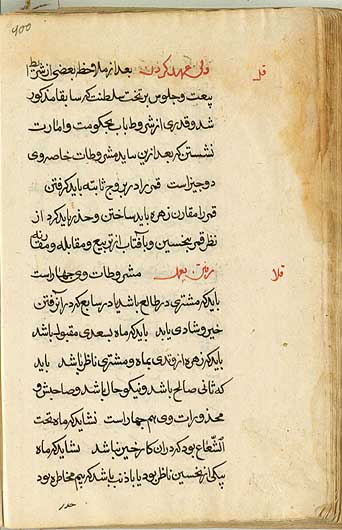 ۹۰۰
ولی عهد کردن بعد از ملاحظه بعضی از شرایط
بیعت و جلوس بر تخت سلطنت که سابقا مذکور
شد و قدری از شروط باب حکومت و امارت
نشستن که بعد ازین بیاید مشروطات خاصه وی
دو چیز است قمر را در بروج ثابته باید گرفتن
قمر را مقارن زهره باید ساختن و حذر باید کرد از
نظر قمر بنحسین و بآفتاب از تربیع و مقابله و مقارنه
رفتن مشروطات وی چهار است
باید که مشتری در طالع باشد یا در سابع که در آن رفتن
خیر و شادی یابد باید که ماه بسعدی مقبول باشد
باید که زهره از وتدی بماه و مشتری ناظر باشد باید
که ثانی صالح باشد و نیکو حال باشد و صاحبش و
محذورات وی هم چهار است نشاید که ماه تحت
الشعاع بود که در آن کار خیر نباشد نشاید که ماه
بیکی از نحسین ناظر بود یا با ذنب باشد که بیم مخاطره بود